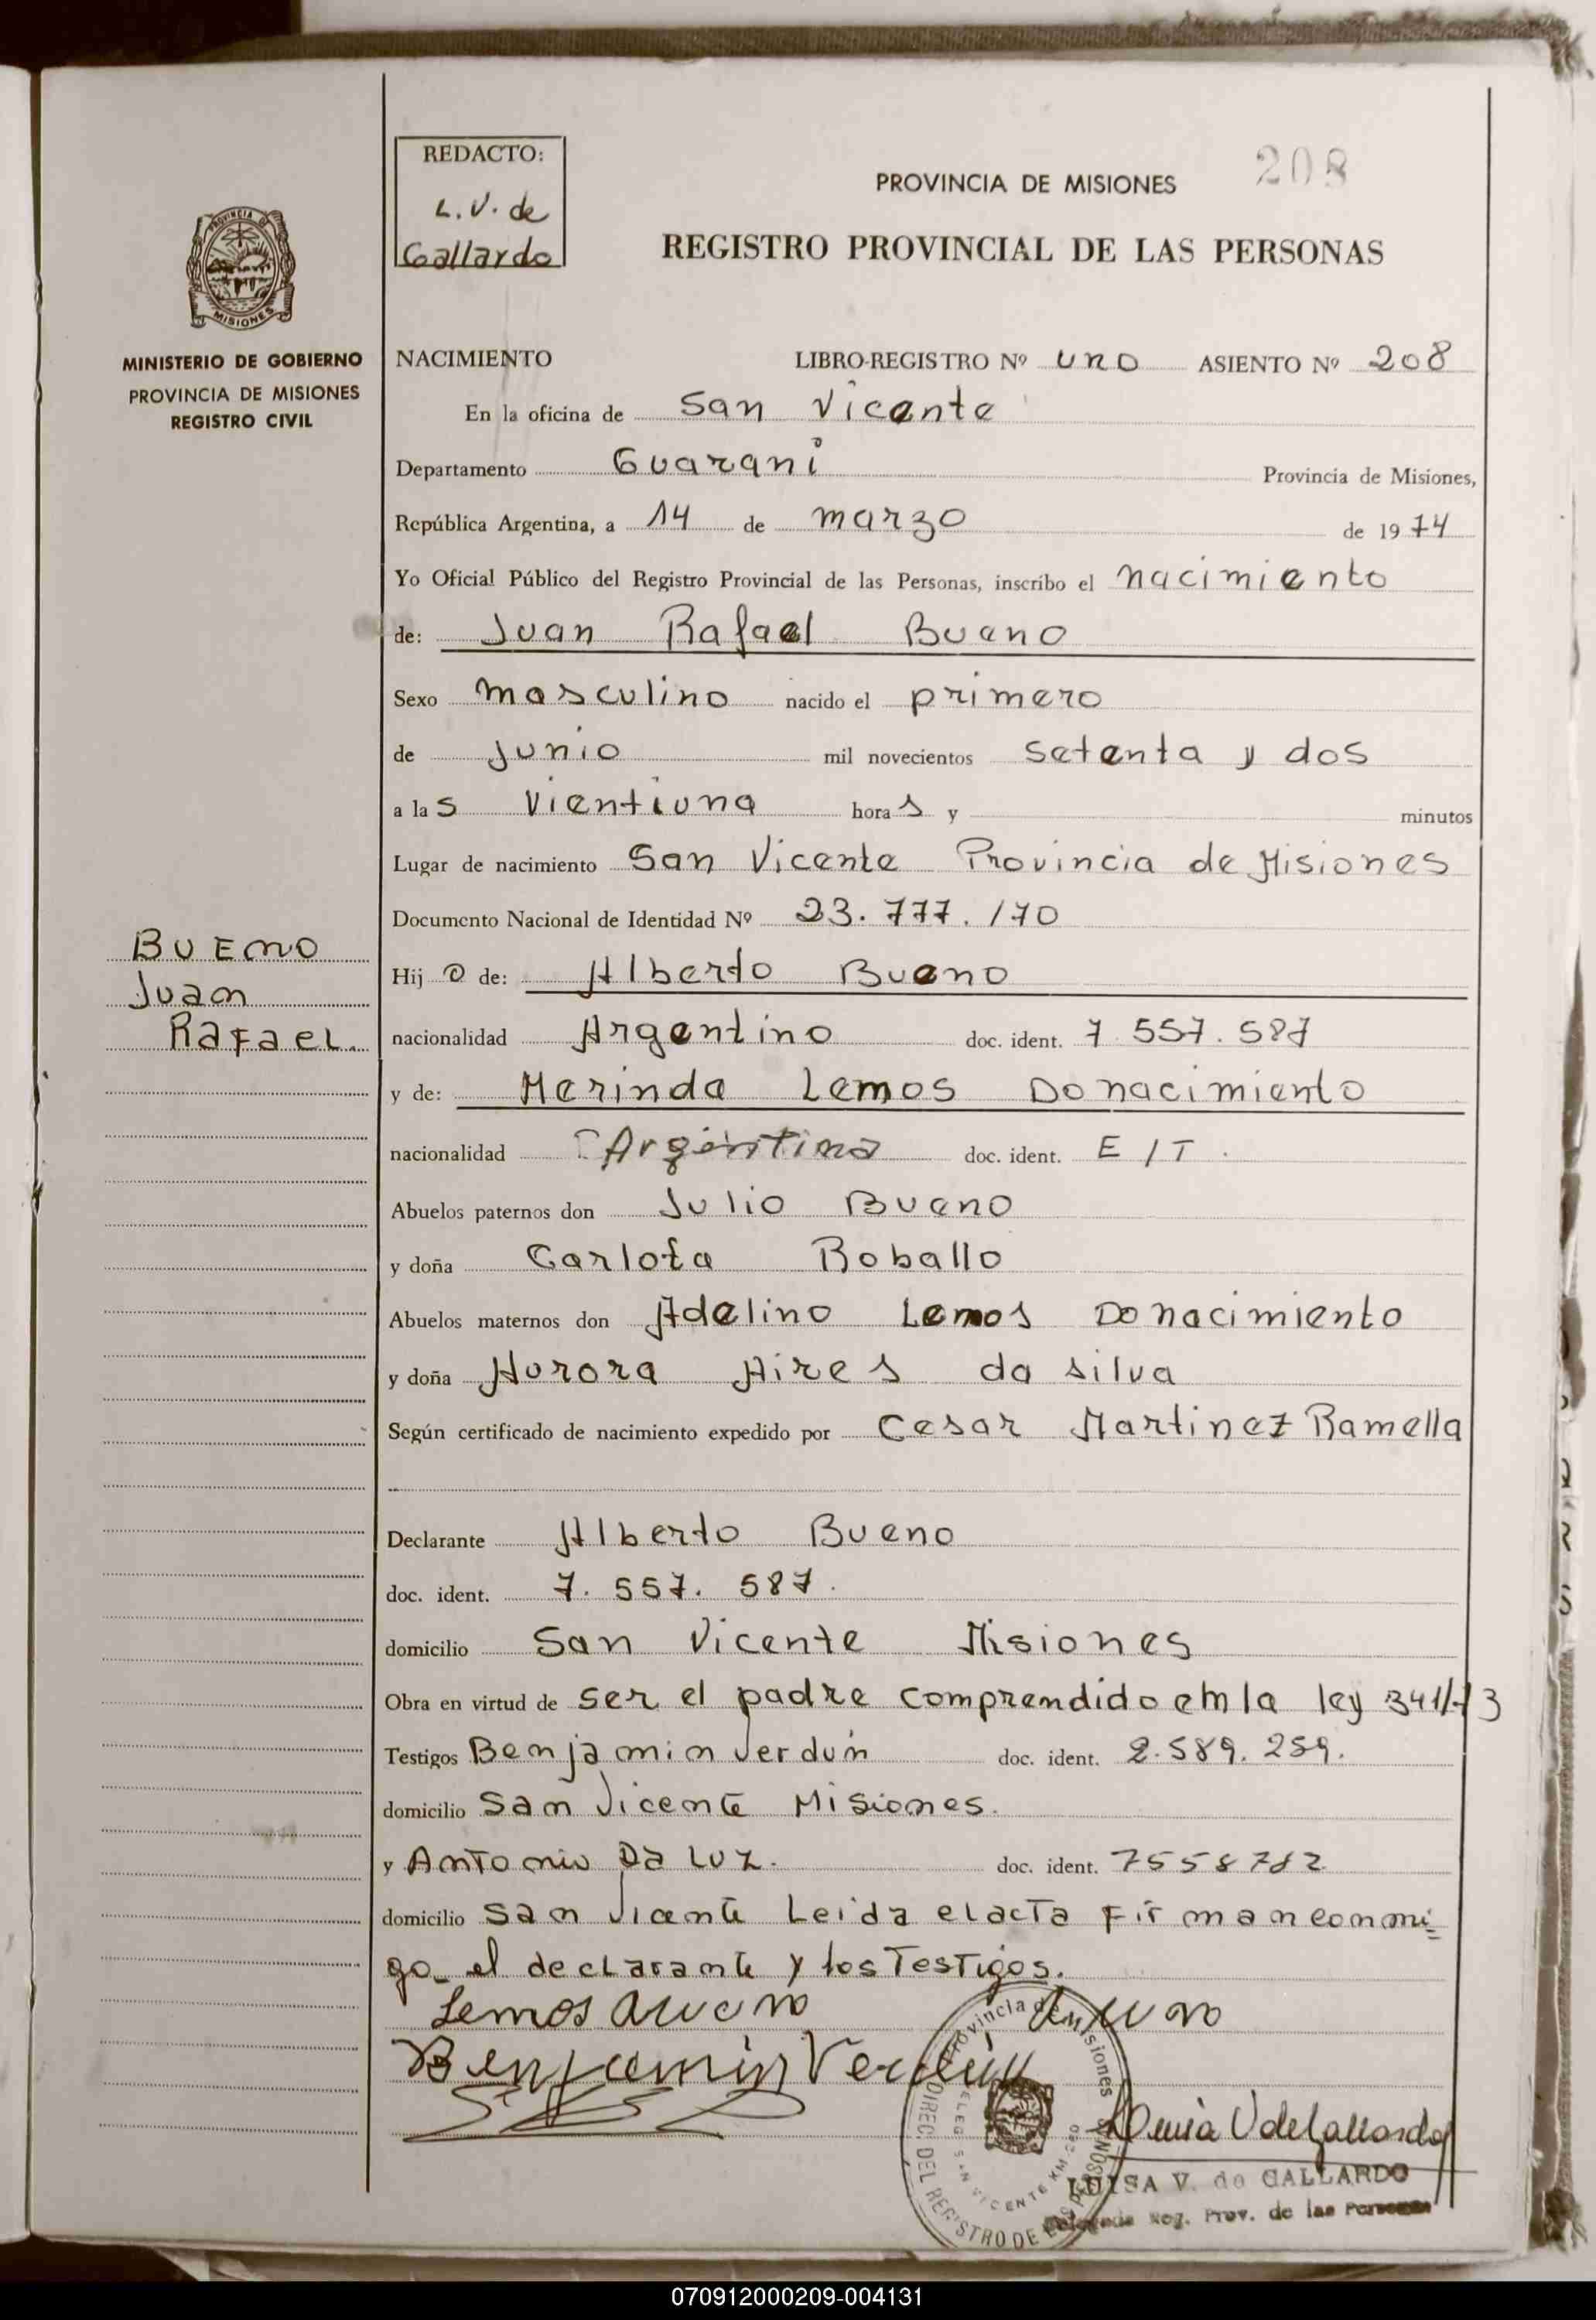 REDACTO:
L. V. de
Gallardo
208
PROVINCIA DE MISIONES
REGISTRO PROVINCIAL DE LAS PERSONAS
PROVINCIA DE
MISIONES
MINISTERIO DE GOBIERNO
PROVINCIA DE MISIONES
REGISTRO CIVIL
NACIMIENTO LIBRO-REGISTRO Nº uno ASIENTO Nº 208
En la oficina de San Vicente
Departamento Guarani Provincia de Misiones,
República Argentina, a 14 de marzo de 1974
Yo Oficial Público del Registro Provincial de las Personas, inscribo el nacimiento
de: Juan Rafael Bueno
Sexo masculino nacido el primero
de junio mil novecientos setenta y dos
a las vientiuna horas y minutos
Lugar de nacimiento San Vicente Provincia de Misiones
Documento Nacional de Identidad Nº 23.777.170
BUENO
Juan
RAFAEL.
Hijo de: Alberto Bueno
nacionalidad Argentino doc. ident. 7.557.587
y de: Merinda Lemos Donacimiento
nacionalidad Argentina doc. ident. E/T.
Abuelos paternos don Julio Bueno
y doña Carlota Roballo
Abuelos maternos don Adelino Lemos Donacimiento
y doña Aurora Aires da silva
Según certificado de nacimiento expedido por Cesar Martinez Ramella
Declarante Alberto Bueno
doc. ident. 7.557.587.
domicilio San Vicente Misiones
Obra en virtud de ser el padre comprendido en la ley 341/73
Testigos Benjamin Verdún doc. ident. 2.589.259.
domicilio San Vicente Misiones.
y Antonio Da Luz. doc. ident. 7558782
domicilio San Vicente Leida el acta firman conmi=
go el declarante y los Testigos.
Lemos
Benjamin Verdún
Provincia de Misiones
DIREC. DEL REGISTRO DE LAS PERSONAS
DELEG. SAN VICENTE KM.
Luisa V de Gallardo
LUISA V. de GALLARDO
Delegada Reg. Prov. de las Personas
070912000209-004131